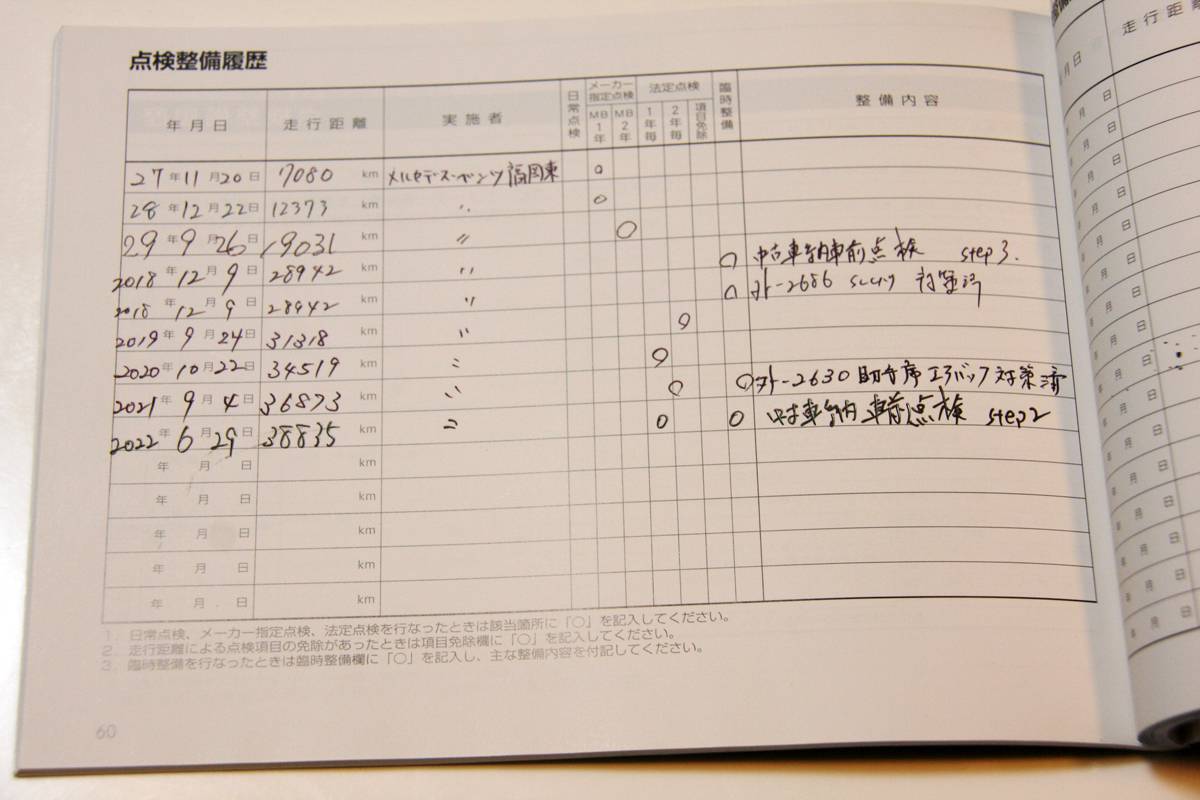 点検整備履歴
年月日 走行距離 実施者 日常点検 メーカー指定点検 MB1年 MB2年 法定点検 1年毎 2年毎 項目免除 臨時整備 整備内容
27年11月20日 7080 km メルセデス・ベンツ福岡東 ○
28年12月22日 12373 km 〃 ○
29年9月26日 19031 km 〃 ○
2018年12月9日 28942 km 〃 ○ 中古車納車前点検 step3.
2018年12月9日 28942 km 〃 ○ 外-2686 対策済
2019年9月24日 31318 km 〃 ○
2020年10月22日 34519 km 〃 ○
2021年9月4日 36873 km 〃 ○ ○ 外-2630 助手席エアバッグ対策済
2022年6月29日 38835 km 〃 ○ ○ 中古車納車前点検 step2
年 月 日 km
年 月 日 km
年 月 日 km
年 月 日 km
年 月 日 km
1. 日常点検、メーカー指定点検、法定点検を行なったときは該当箇所に「○」を記入してください。
2. 走行距離による点検項目の免除があったときは項目免除欄に「○」を記入してください。
3. 臨時整備を行なったときは臨時整備欄に「○」を記入し、主な整備内容を付記してください。
60
走行距離
月日